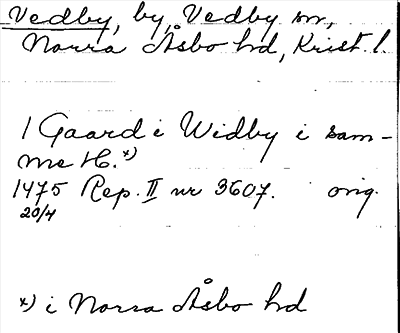 Vedby, by, Vedby sn,
Norra Åsbo hd, Krist. l.
1 Gaard i Widby i sam-
me H. x)
1475 Rep. II nr 3607. orig.
20/4
x) i Norra Åsbo hd